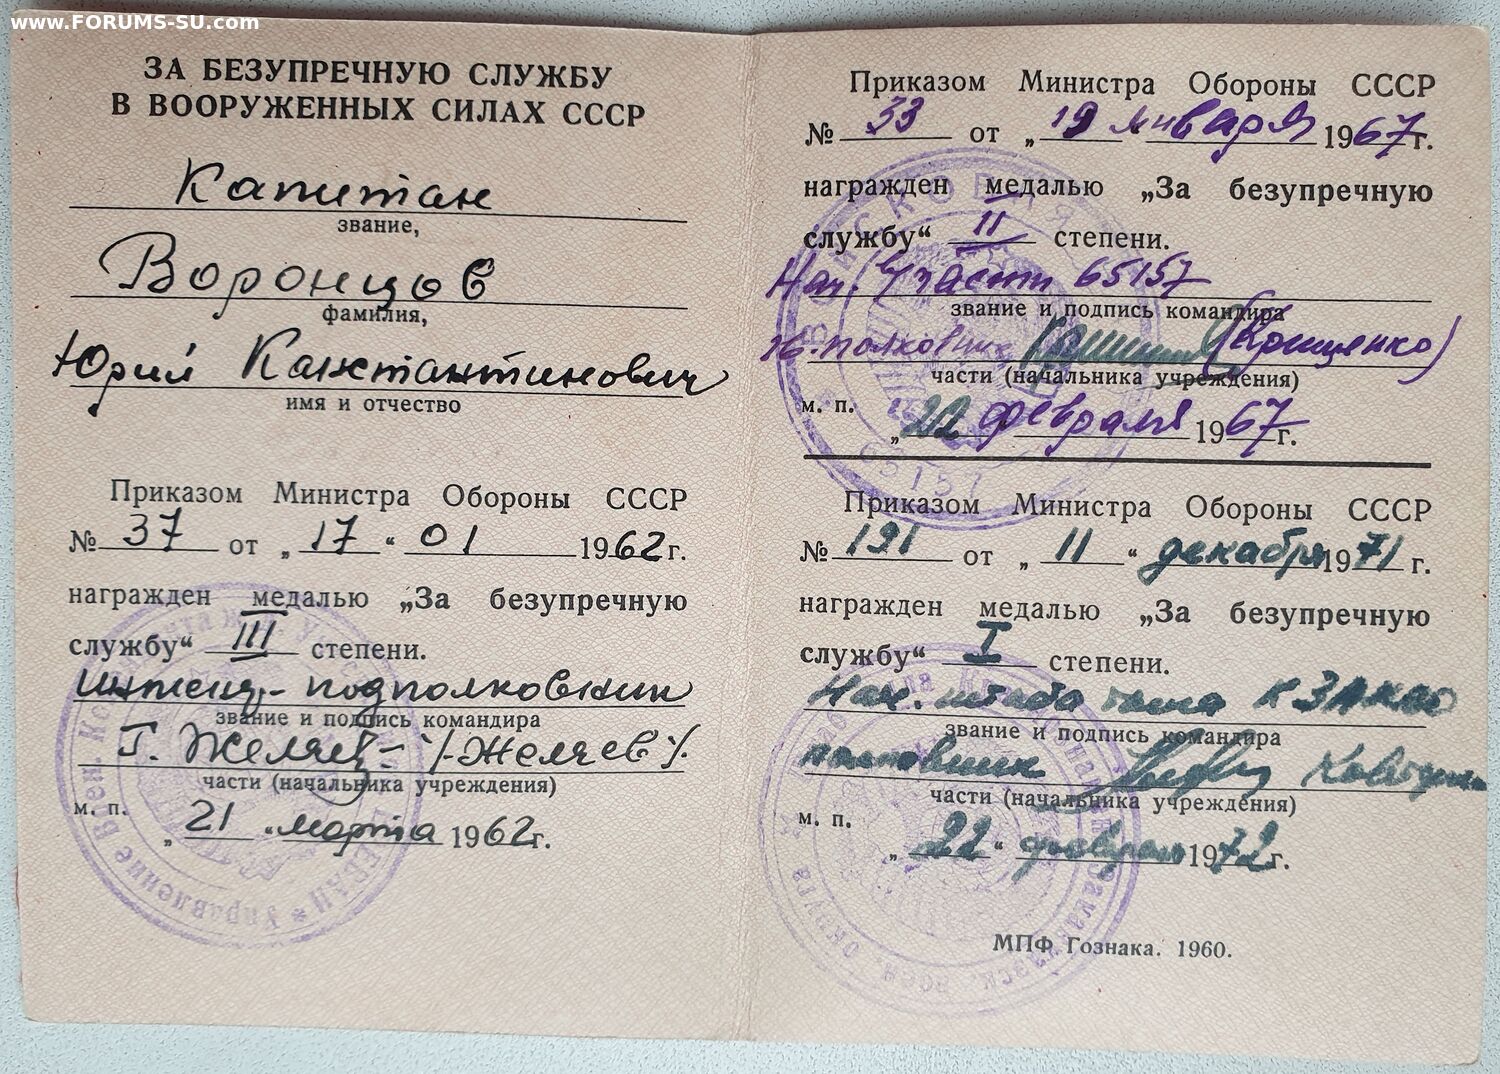 www.FORUMS-SU.com
ЗА БЕЗУПРЕЧНУЮ СЛУЖБУ
В ВООРУЖЕННЫХ СИЛАХ СССР
Капитан
звание,
Воронцов
фамилия,
Юрий Константинович
имя и отчество
Приказом Министра Обороны СССР
№ 37 от „17“ 01 1962 г.
награжден медалью „За безупречную
службу“ III степени.
Инженер-подполковник
звание и подпись командира
Г. Желяев- /-Желяев/.
части (начальника учреждения)
м. п.
„21“ марта 1962 г.
Приказом Министра Обороны СССР
№ 33 от „19“ января 1967 г.
награжден медалью „За безупречную
службу“ II степени.
Нач. в/части 65157
звание и подпись командира
полковник (Крищенко)
части (начальника учреждения)
м. п.
„22 февраля 1967 г.
65157
Приказом Министра Обороны СССР
№ 191 от „11“ декабря 1971 г.
награжден медалью „За безупречную
службу“ I степени.
Нач. штаба тыла КЗАКВО
звание и подпись командира
полковник
части (начальника учреждения)
м. п.
„22“ февраля 1972 г.
МПФ Гознака. 1960.